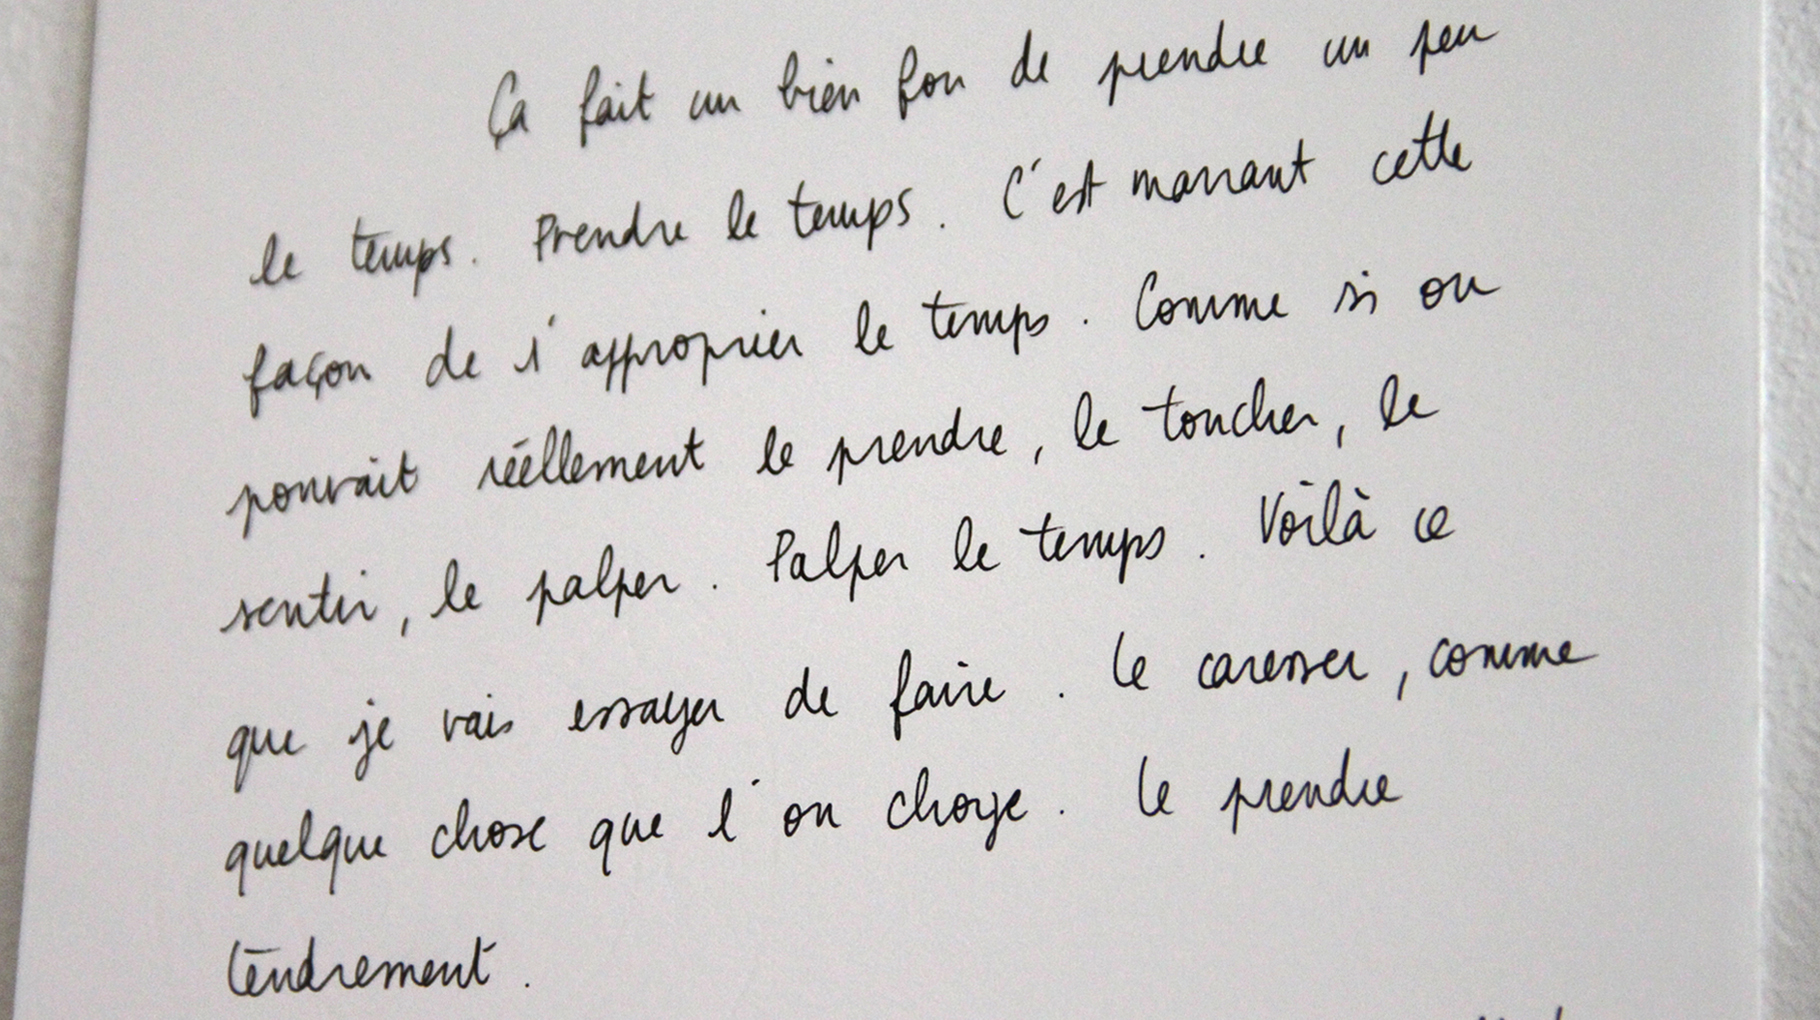 Ça fait un bien fou de prendre un peu
le temps. Prendre le temps. C'est marrant cette
façon de s'approprier le temps. Comme si on
pouvait réellement le prendre, le toucher, le
sentir, le palper. Palper le temps. Voilà ce
que je vais essayer de faire. Le caresser, comme
quelque chose que l'on choye. Le prendre
tendrement.